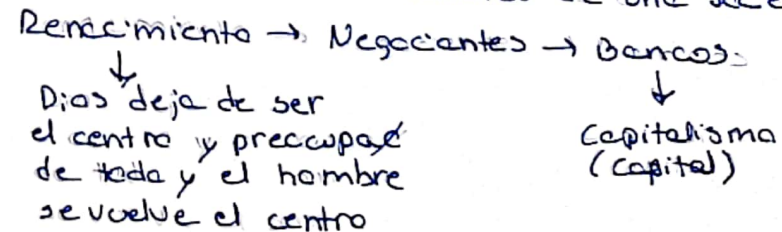 Renacimiento → Negociantes → Bancos
↓ ↓
Dios deja de ser
el centro y preocupac
de todo y el hombre
se vuelve el centro
Capitalismo
(capital)